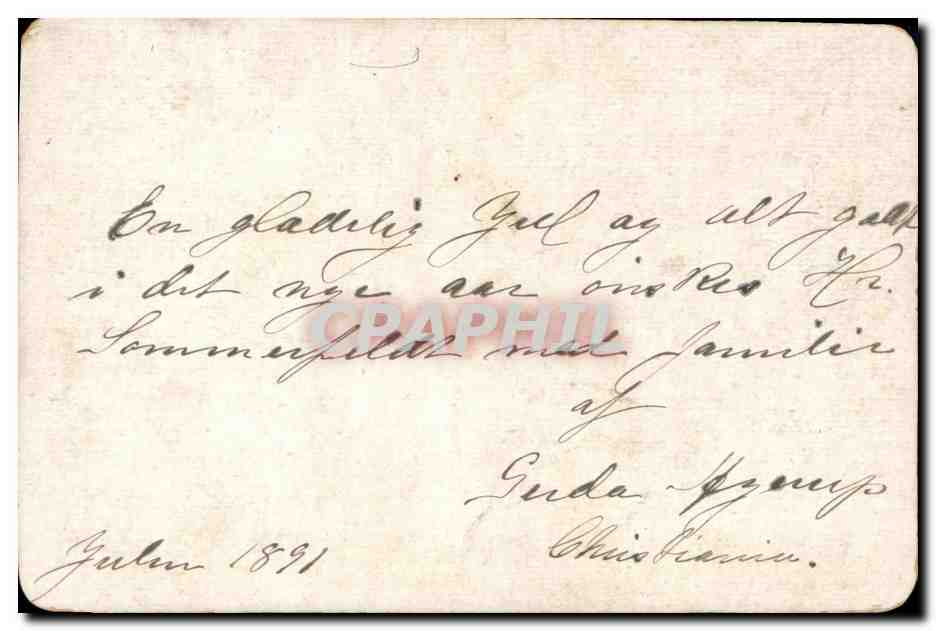 En gladelig Juul og alt godt
i det nye aar önskes Hr.
CPAPHIL
Sommerfeldt med familie
af
Gerda
Julen 1891
Christiania.